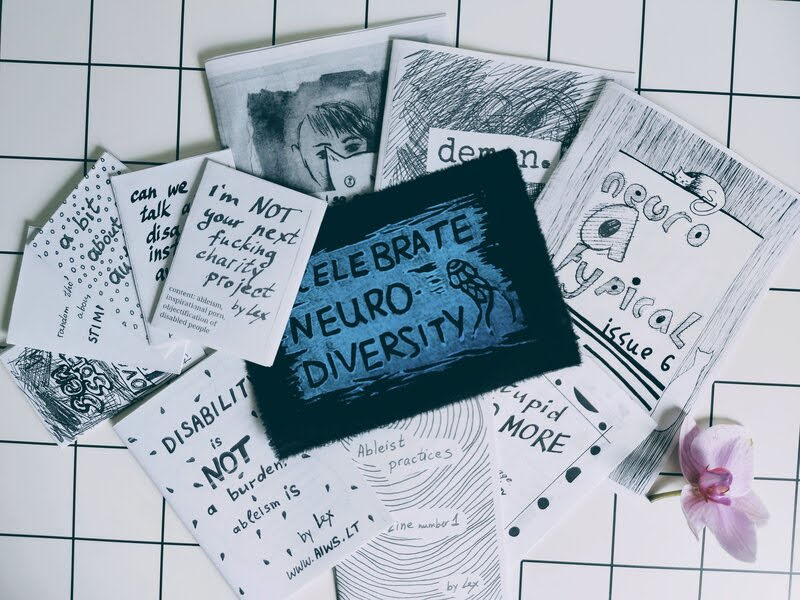 demon.
neuro
a
typical
issue 6
a bit
about
STIMI
can we
talk a
I'm NOT
your next
fucking
charity
project
by Lex
content: ableism,
inspirational porn,
objectification of
disabled people
CELEBRATE
NEURO-
DIVERSITY
DISABILIT
is
NOT
a burden.
ableism is
by Lex
WWW.AIWS.LT
Ableist
practices
zine number 1
by Lex
MORE